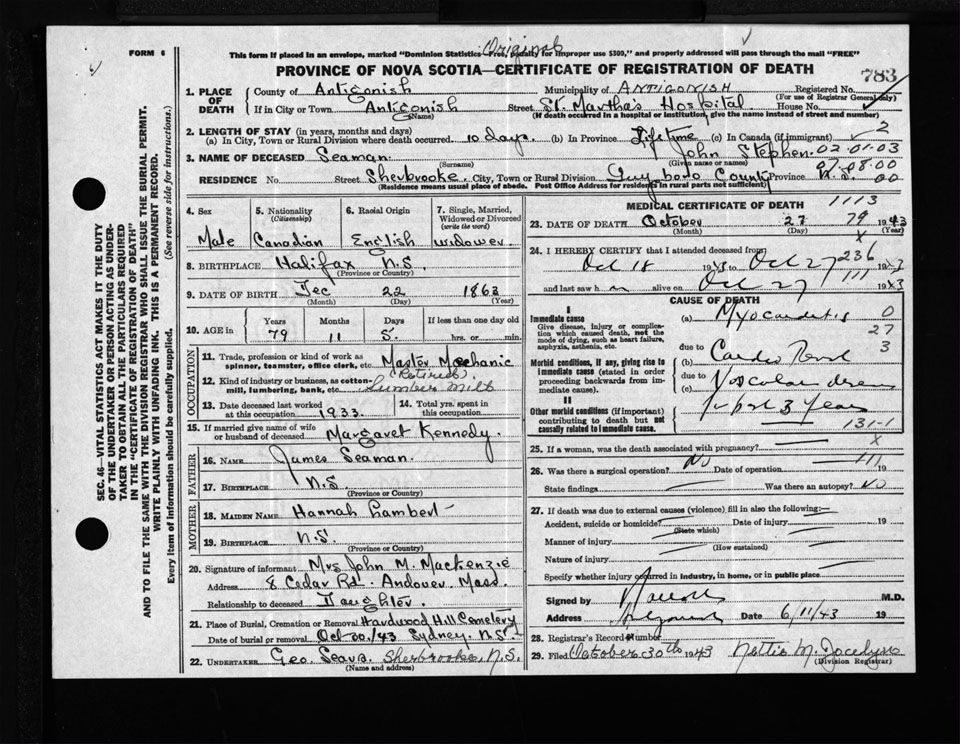 FORM 6
Original
This form if placed in an envelope, marked "Dominion Statistics—Free, penalty for improper use $300," and properly addressed will pass through the mail "FREE"
PROVINCE OF NOVA SCOTIA—CERTIFICATE OF REGISTRATION OF DEATH
783
1. PLACE OF DEATH County of Antigonish Municipality of ANTIGONISH Registered No.
(For use of Registrar General only)
If in City or Town Antigonish Street St. Martha's Hospital House No.
(Name) (If death occurred in a hospital or institution, give the name instead of street and number)
2. LENGTH OF STAY (in years, months and days)
(a) In City, Town or Rural Division where death occurred. 10 days. (b) In Province Lifetime (c) In Canada (if immigrant) 2
3. NAME OF DECEASED Seaman John Stephen 02-01-03
(Surname) (Given name or names) 07-08-00
RESIDENCE No. Street Sherbrooke. City, Town or Rural Division Guysboro County Province N.S. 00
(Residence means usual place of abode. Post Office Address for residents in rural parts not sufficient)
4. Sex 5. Nationality (Citizenship) 6. Racial Origin 7. Single, Married, Widowed or Divorced (write the word)
Male Canadian English widower
8. BIRTHPLACE Halifax N.S.
(Province or Country)
9. DATE OF BIRTH Dec 22 1863
(Month) (Day) (Year)
10. AGE in Years Months Days If less than one day old
79 11 5 hrs. or min.
OCCUPATION
11. Trade, profession or kind of work as spinner, teamster, office clerk, etc. Master Mechanic
Retired
12. Kind of industry or business, as cotton-mill, lumbering, bank, etc. Lumber Mill
13. Date deceased last worked at this occupation 1933.
14. Total yrs. spent in this occupation
15. If married give name of wife or husband of deceased Margaret Kennedy.
FATHER
16. NAME James Seaman.
17. BIRTHPLACE N.S.
(Province or Country)
MOTHER
18. MAIDEN NAME Hannah Lambert
19. BIRTHPLACE N.S.
(Province or Country)
20. Signature of informant Mrs John M. MacKenzie
Address 8 Cedar Rd. Andover, Mass.
Relationship to deceased Daughter.
21. Place of Burial, Cremation or Removal Hardwood Hill Cemetery
Date of burial or removal Oct 30./43 Sydney, N.S.
22. UNDERTAKER Geo. Sears. Sherbrooke, N.S.
(Name and address)
MEDICAL CERTIFICATE OF DEATH 1113
23. DATE OF DEATH October 27 79 1943
(Month) (Day) (Year)
X
24. I HEREBY CERTIFY that I attended deceased from
Oct 18 1943 to Oct 27 236 1943
and last saw h m alive on Oct 27 111 1943
CAUSE OF DEATH
I
Immediate cause
Give disease, injury or complication which caused death, not the mode of dying, such as heart failure, asphyxia, asthenia, etc.
(a) Myocarditis 0
27
due to 3
Morbid conditions, if any, giving rise to immediate cause (stated in order proceeding backwards from immediate cause).
(b) Cardio Renal
due to
(c) Vascular disease
II
Other morbid conditions (if important) contributing to death but not causally related to immediate cause.
for past 3 Years
131-1
25. If a woman, was the death associated with pregnancy? X
26. Was there a surgical operation? No Date of operation 111 19
State findings Was there an autopsy? NO
27. If death was due to external causes (violence) fill in also the following:—
Accident, suicide or homicide? Date of injury 19
(State which)
Manner of injury
(How sustained)
Nature of injury
Specify whether injury occurred in industry, in home, or in public place
Signed by M.D.
Address Date 6/11/43 19
28. Registrar's Record Number
29. Filed October 30th 1943 Nettie M. Jocelyn
(Division Registrar)
SEC. 46—VITAL STATISTICS ACT MAKES IT THE DUTY
OF THE UNDERTAKER OR PERSON ACTING AS UNDER-
TAKER TO OBTAIN ALL THE PARTICULARS REQUIRED
IN THE "CERTIFICATE OF REGISTRATION OF DEATH"
AND TO FILE THE SAME WITH THE DIVISION REGISTRAR WHO SHALL ISSUE THE BURIAL PERMIT.
WRITE PLAINLY WITH UNFADING INK. THIS IS A PERMANENT RECORD.
Every item of information should be carefully supplied. (See reverse side for instructions.)